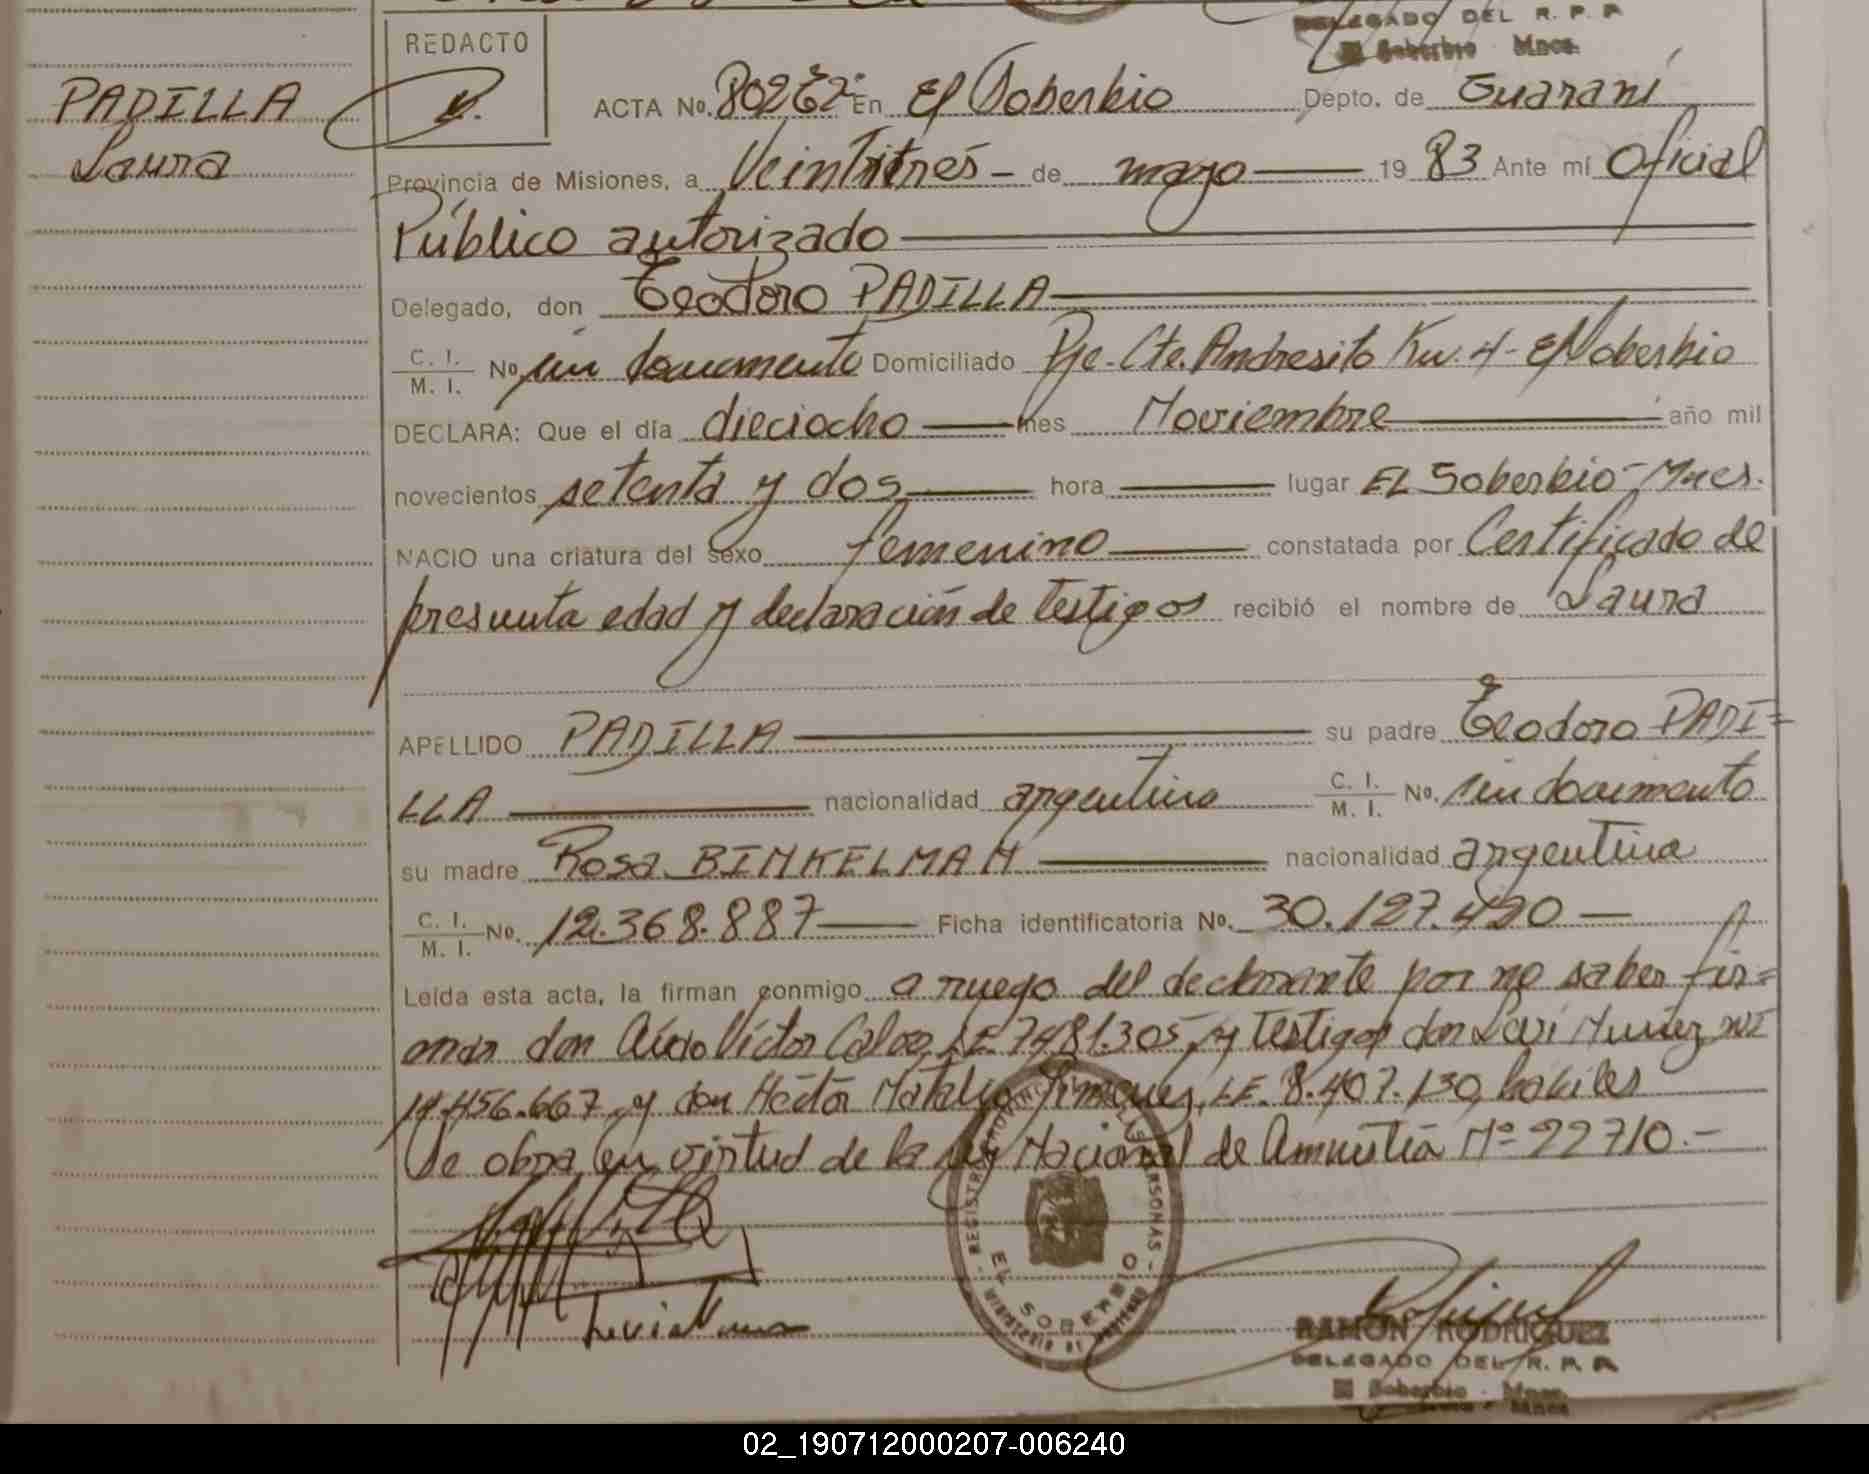 DELEGADO DEL R. P. P.
El Soberbio - Mnes.
REDACTO
PADILLA
Laura
ACTA No. En El Soberbio Depto. de Guaraní
Provincia de Misiones, a Veintitrés - de mayo 19 83 Ante mí Oficial
Público autorizado
Delegado, don Teodoro PADILLA
C. I. / M. I. No. sin documento Domiciliado Pje. Cte. Andresito Km. 4 - El Soberbio
DECLARA: Que el día dieciocho mes Noviembre año mil
novecientos setenta y dos hora lugar EL Soberbio - Mnes.
NACIO una criatura del sexo femenino constatada por Certificado de
presunta edad y declaración de testigos recibió el nombre de Laura
APELLIDO PADILLA su padre Teodoro PADI=
LLA nacionalidad argentina C. I. / M. I. No. sin documento
su madre Rosa BINKELMAN nacionalidad argentina
C. I. / M. I. No. 12.368.887 Ficha identificatoria No. 30.127.420 -
Leída esta acta, la firman conmigo a ruego del declarante por no saber fir=
mar don Víctor L.E. 7481.305 y testigos don
.456.667 y don Héctor L.E. 8.407.130, hábiles
Se obra en virtud de la ley Nacional de Amnistía Nº 22710.-
REGISTRO PROVINCIAL DE LAS PERSONAS
EL SOBERBIO
RAMON RODRIGUEZ
DELEGADO DEL R. P. P.
El Soberbio - Mnes.
02_190712000207-006240